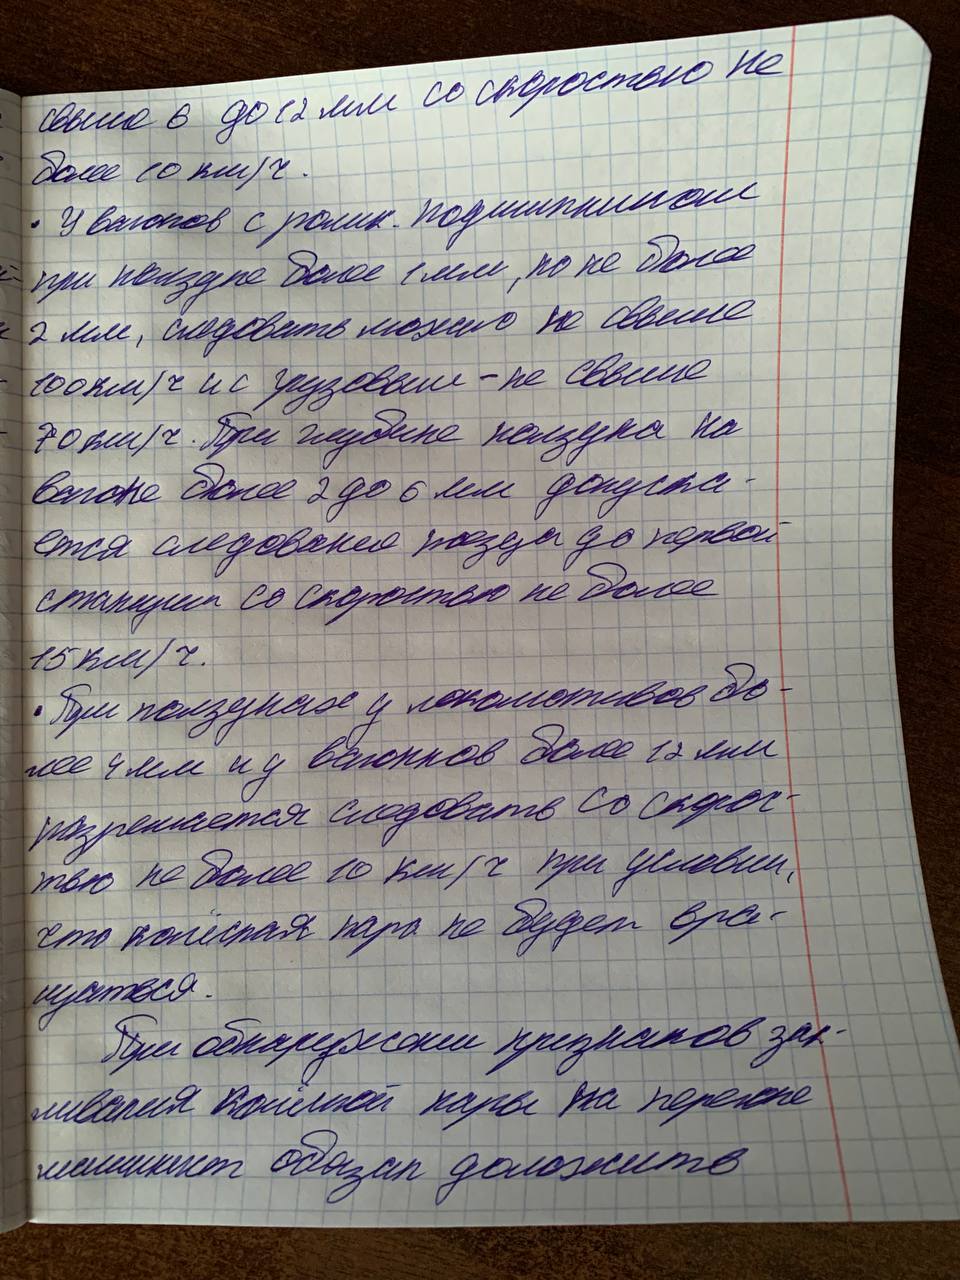 свыше 6 до 12 мм со скоростью не
более 10 км/ч.
• У вагонов с ролик. подшипником
при ползуне более 1 мм, но не более
2 мм, следовать можно не свыше
100 км/ч и с грузовым - не свыше
70 км/ч. При глубине ползуна на
вагоне более 2 до 6 мм допуска-
ется следование поезда до первой
станции со скоростью не более
15 км/ч.
• При ползунах у локомотивов бо-
лее 4 мм и у вагонов более 12 мм
разрешается следовать со скорос-
тью не более 10 км/ч при условии,
что колёсная пара не будет вра-
щаться.
При обнаружении признаков зак-
линивания колёсной пары на перегоне
машинист обязан доложить